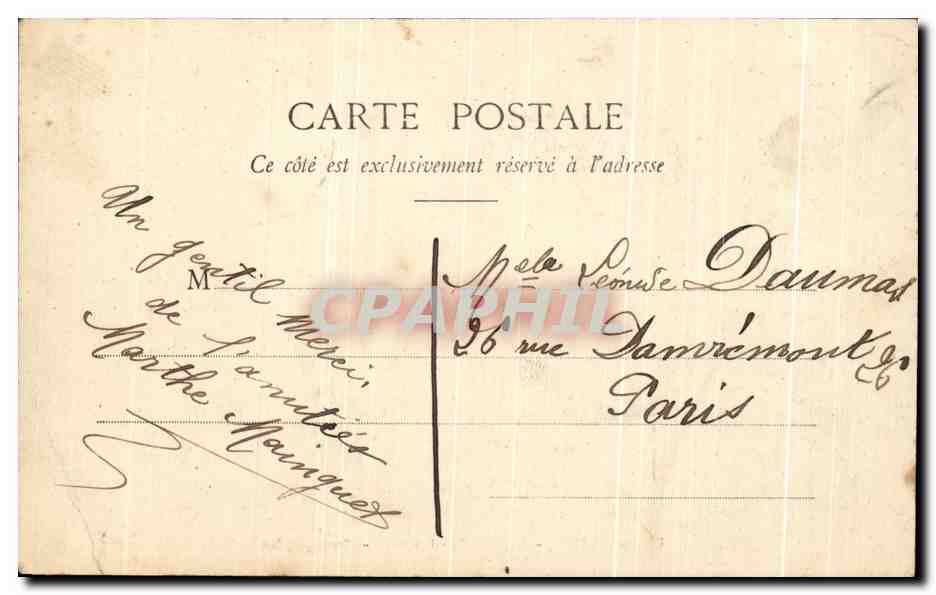 CARTE POSTALE
Ce côté est exclusivement réservé à l'adresse
Un gentil merci,
de l'amitiés
Marthe Mainguet
M
Melle Léonide Daumas
26 rue Damrémont 26
Paris
CPAPHIL